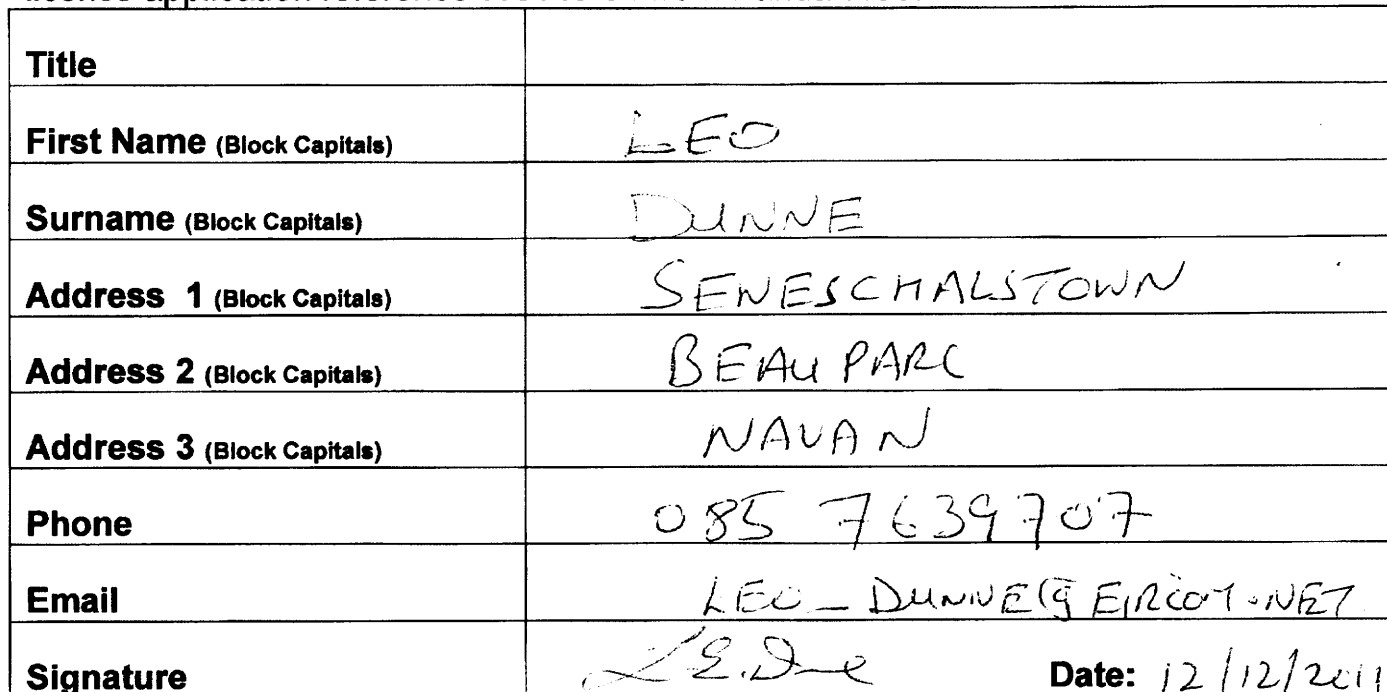 Title
First Name (Block Capitals) LEO
Surname (Block Capitals) DUNNE
Address 1 (Block Capitals) SENESCHALSTOWN
Address 2 (Block Capitals) BEAUPARC
Address 3 (Block Capitals) NAVAN
Phone 085 7639707
Email LEO_DUNNE@EIRCOM.NET
Signature L E. Dunne Date: 12/12/2011